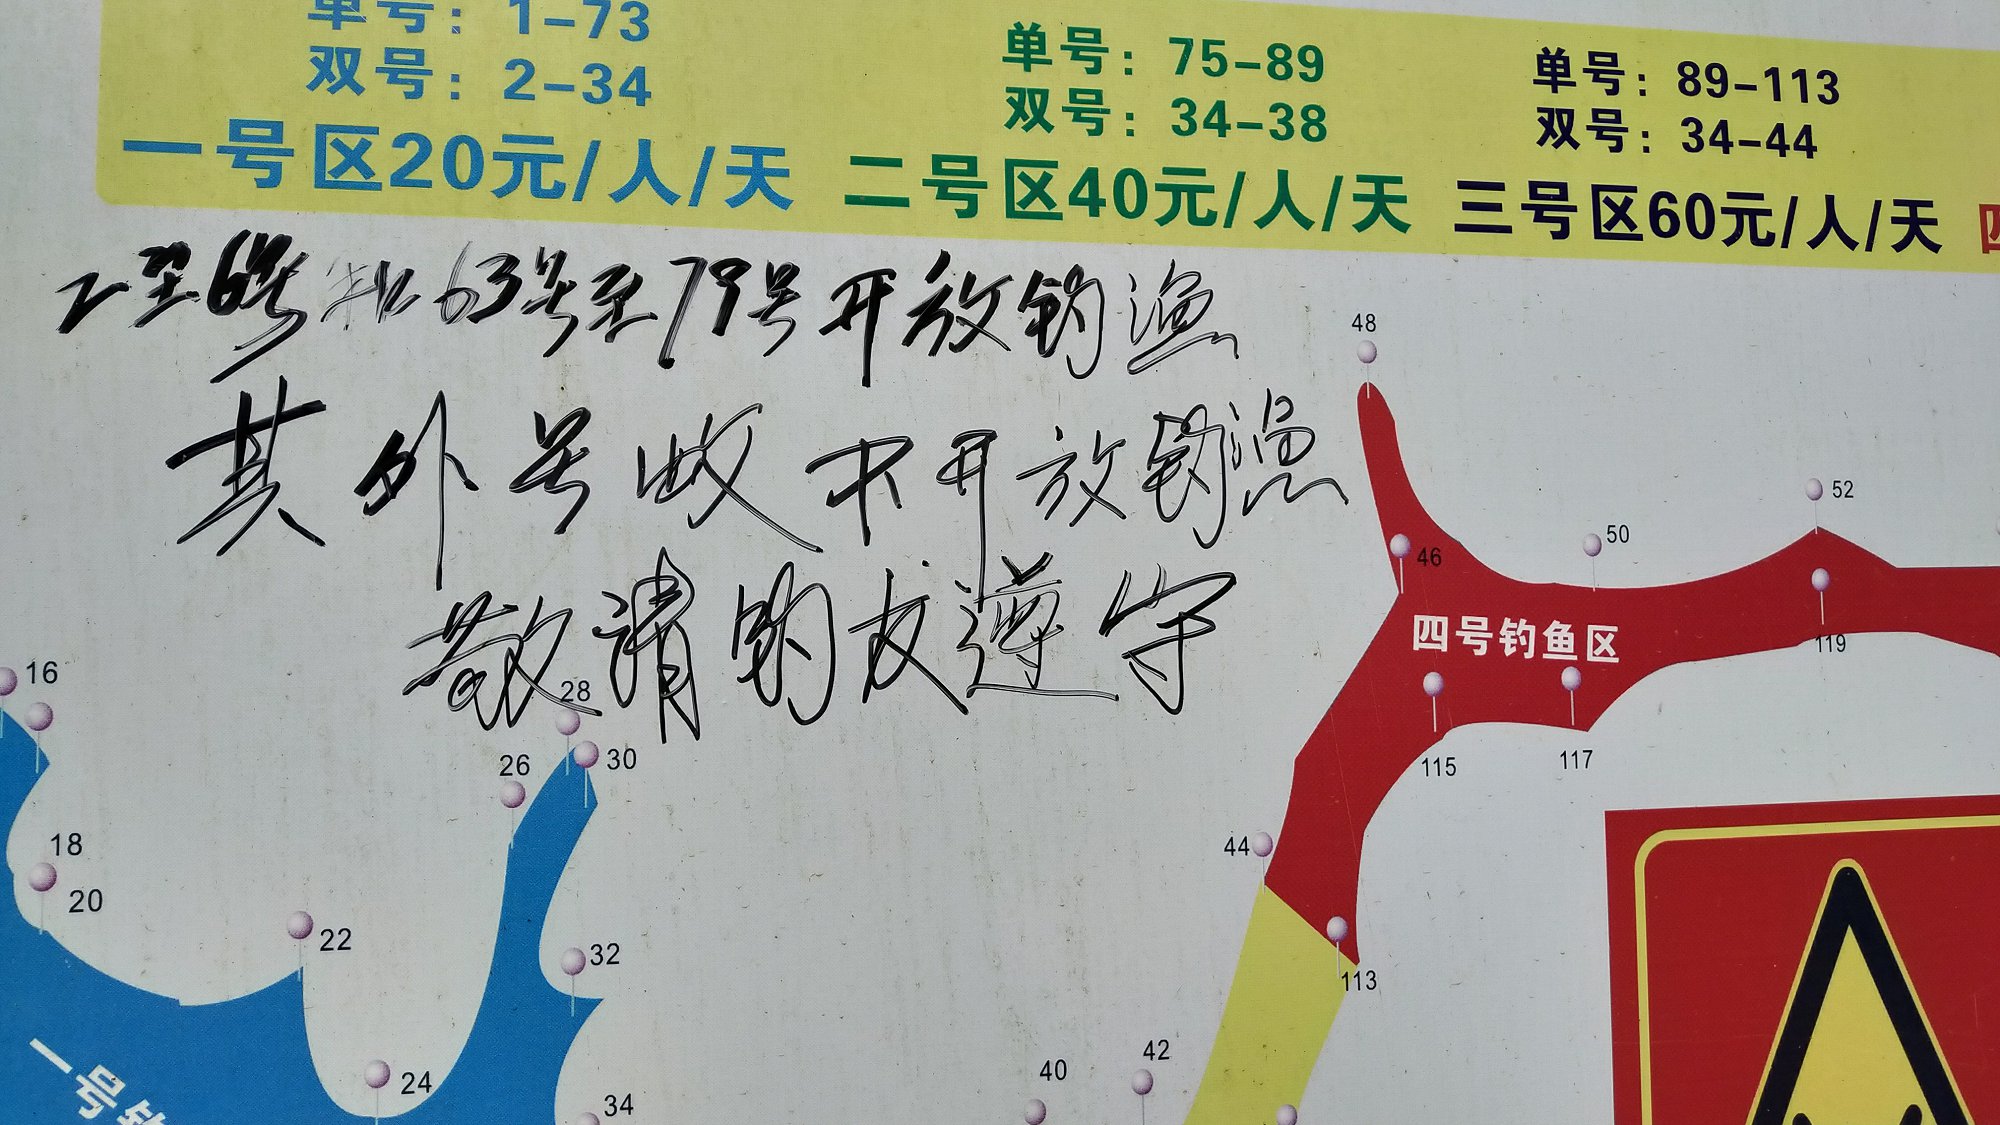 单号：1-73
双号：2-34
一号区20元/人/天
单号：75-89
双号：34-38
二号区40元/人/天
单号：89-113
双号：34-44
三号区60元/人/天
2至6号和63号至79号开放钓渔
其外号收不开放钓渔
敬请钓友遵守
48
52
50
46
四号钓鱼区
119
115
117
16
28
26
30
18
20
44
22
32
113
24
40
42
34
一号钓